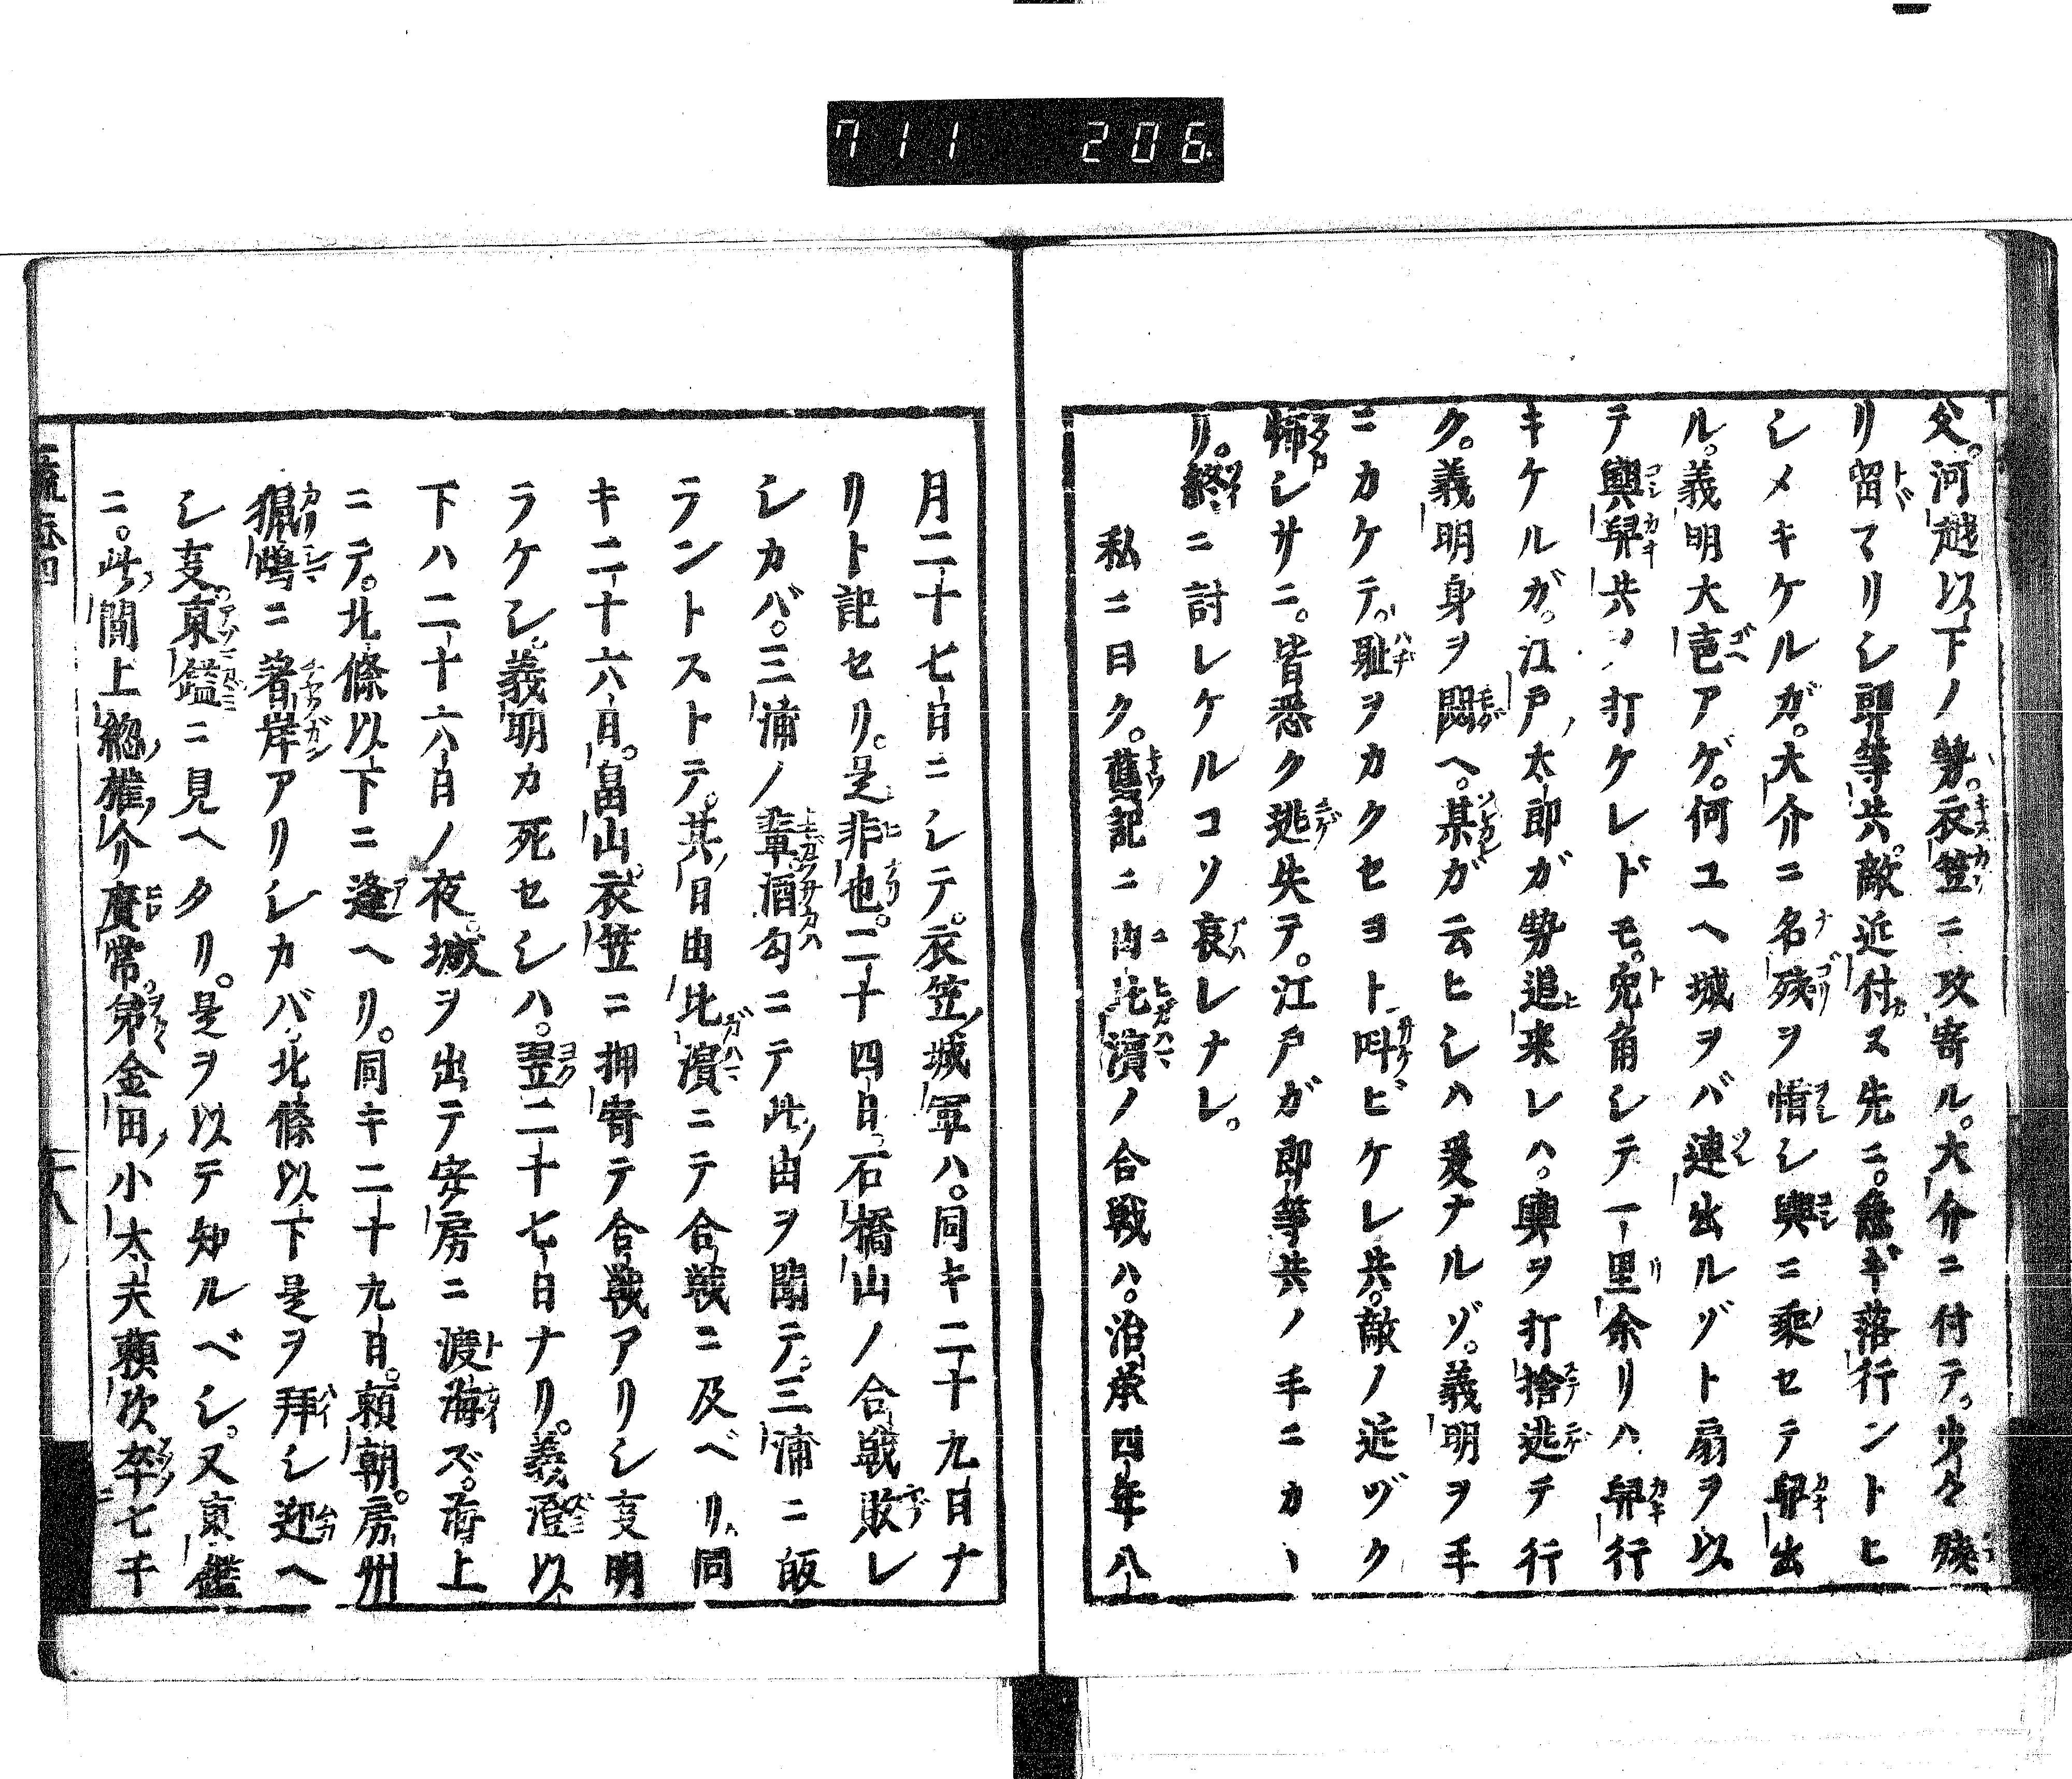 711 206
父。河越以下ノ勢。衣笠ニ攻寄ル。大介ニ付テ。少々残
リ留マリシ郎等共。敵近付ヌ先ニ。急ギ落行ントヒ
シメキケルガ。大介ニ名残ヲ惜シ輿ニ乗セテ舁出
ル。義明大音アゲ。何ユヘ城ヲバ連出ルゾト扇ヲ以
テ輿舁共ヲ打ケレドモ。兎角シテ一里余リハ舁行
キケルガ。江戸太郎ガ勢追来レハ。輿ヲ打捨逃テ行
ク。義明身ヲ悶ヘ。某ガ云ヒシハ爰ナルゾ。義明ヲ手
ニカケテ。耻ヲカクセヨト呌ビケレ共。敵ノ近ヅク
怖シサニ。皆悉ク逃失テ。江戸ガ郎等共ノ手ニカヽ
リ。終ニ討レケルコソ哀レナレ。
私ニ曰ク。舊記ニ由比濱ノ合戦ハ。治承四年八
月二十七日ニシテ。衣笠ノ城軍ハ。同キ二十九日ナ
リト記セリ。是非也。二十四日。石橋山ノ合戦敗レ
シカバ。三浦ノ輩酒匂ニテ此由ヲ聞テ。三浦ニ皈
ラントストテ。其日由比濱ニテ合戦ニ及ベリ。同
キ二十六日。畠山。衣笠ニ押寄テ合戦アリシ亥明
ラケシ。義明カ死セシハ。翌二十七日ナリ。義澄以
下ハ二十六日ノ夜。城ヲ出テ安房ニ渡海ズ。海上
ニテ。北條以下ニ逢ヘリ。同キ二十九日。頼朝。房州
猟嶋ニ著岸アリシカバ。北條以下是ヲ拜シ迎ヘ
シ亥。東鑑ニ見ヘタリ。是ヲ以テ知ルベシ。又東鑑
ニ。此間上総権介廣常。弟金田小太夫頼次卒七千